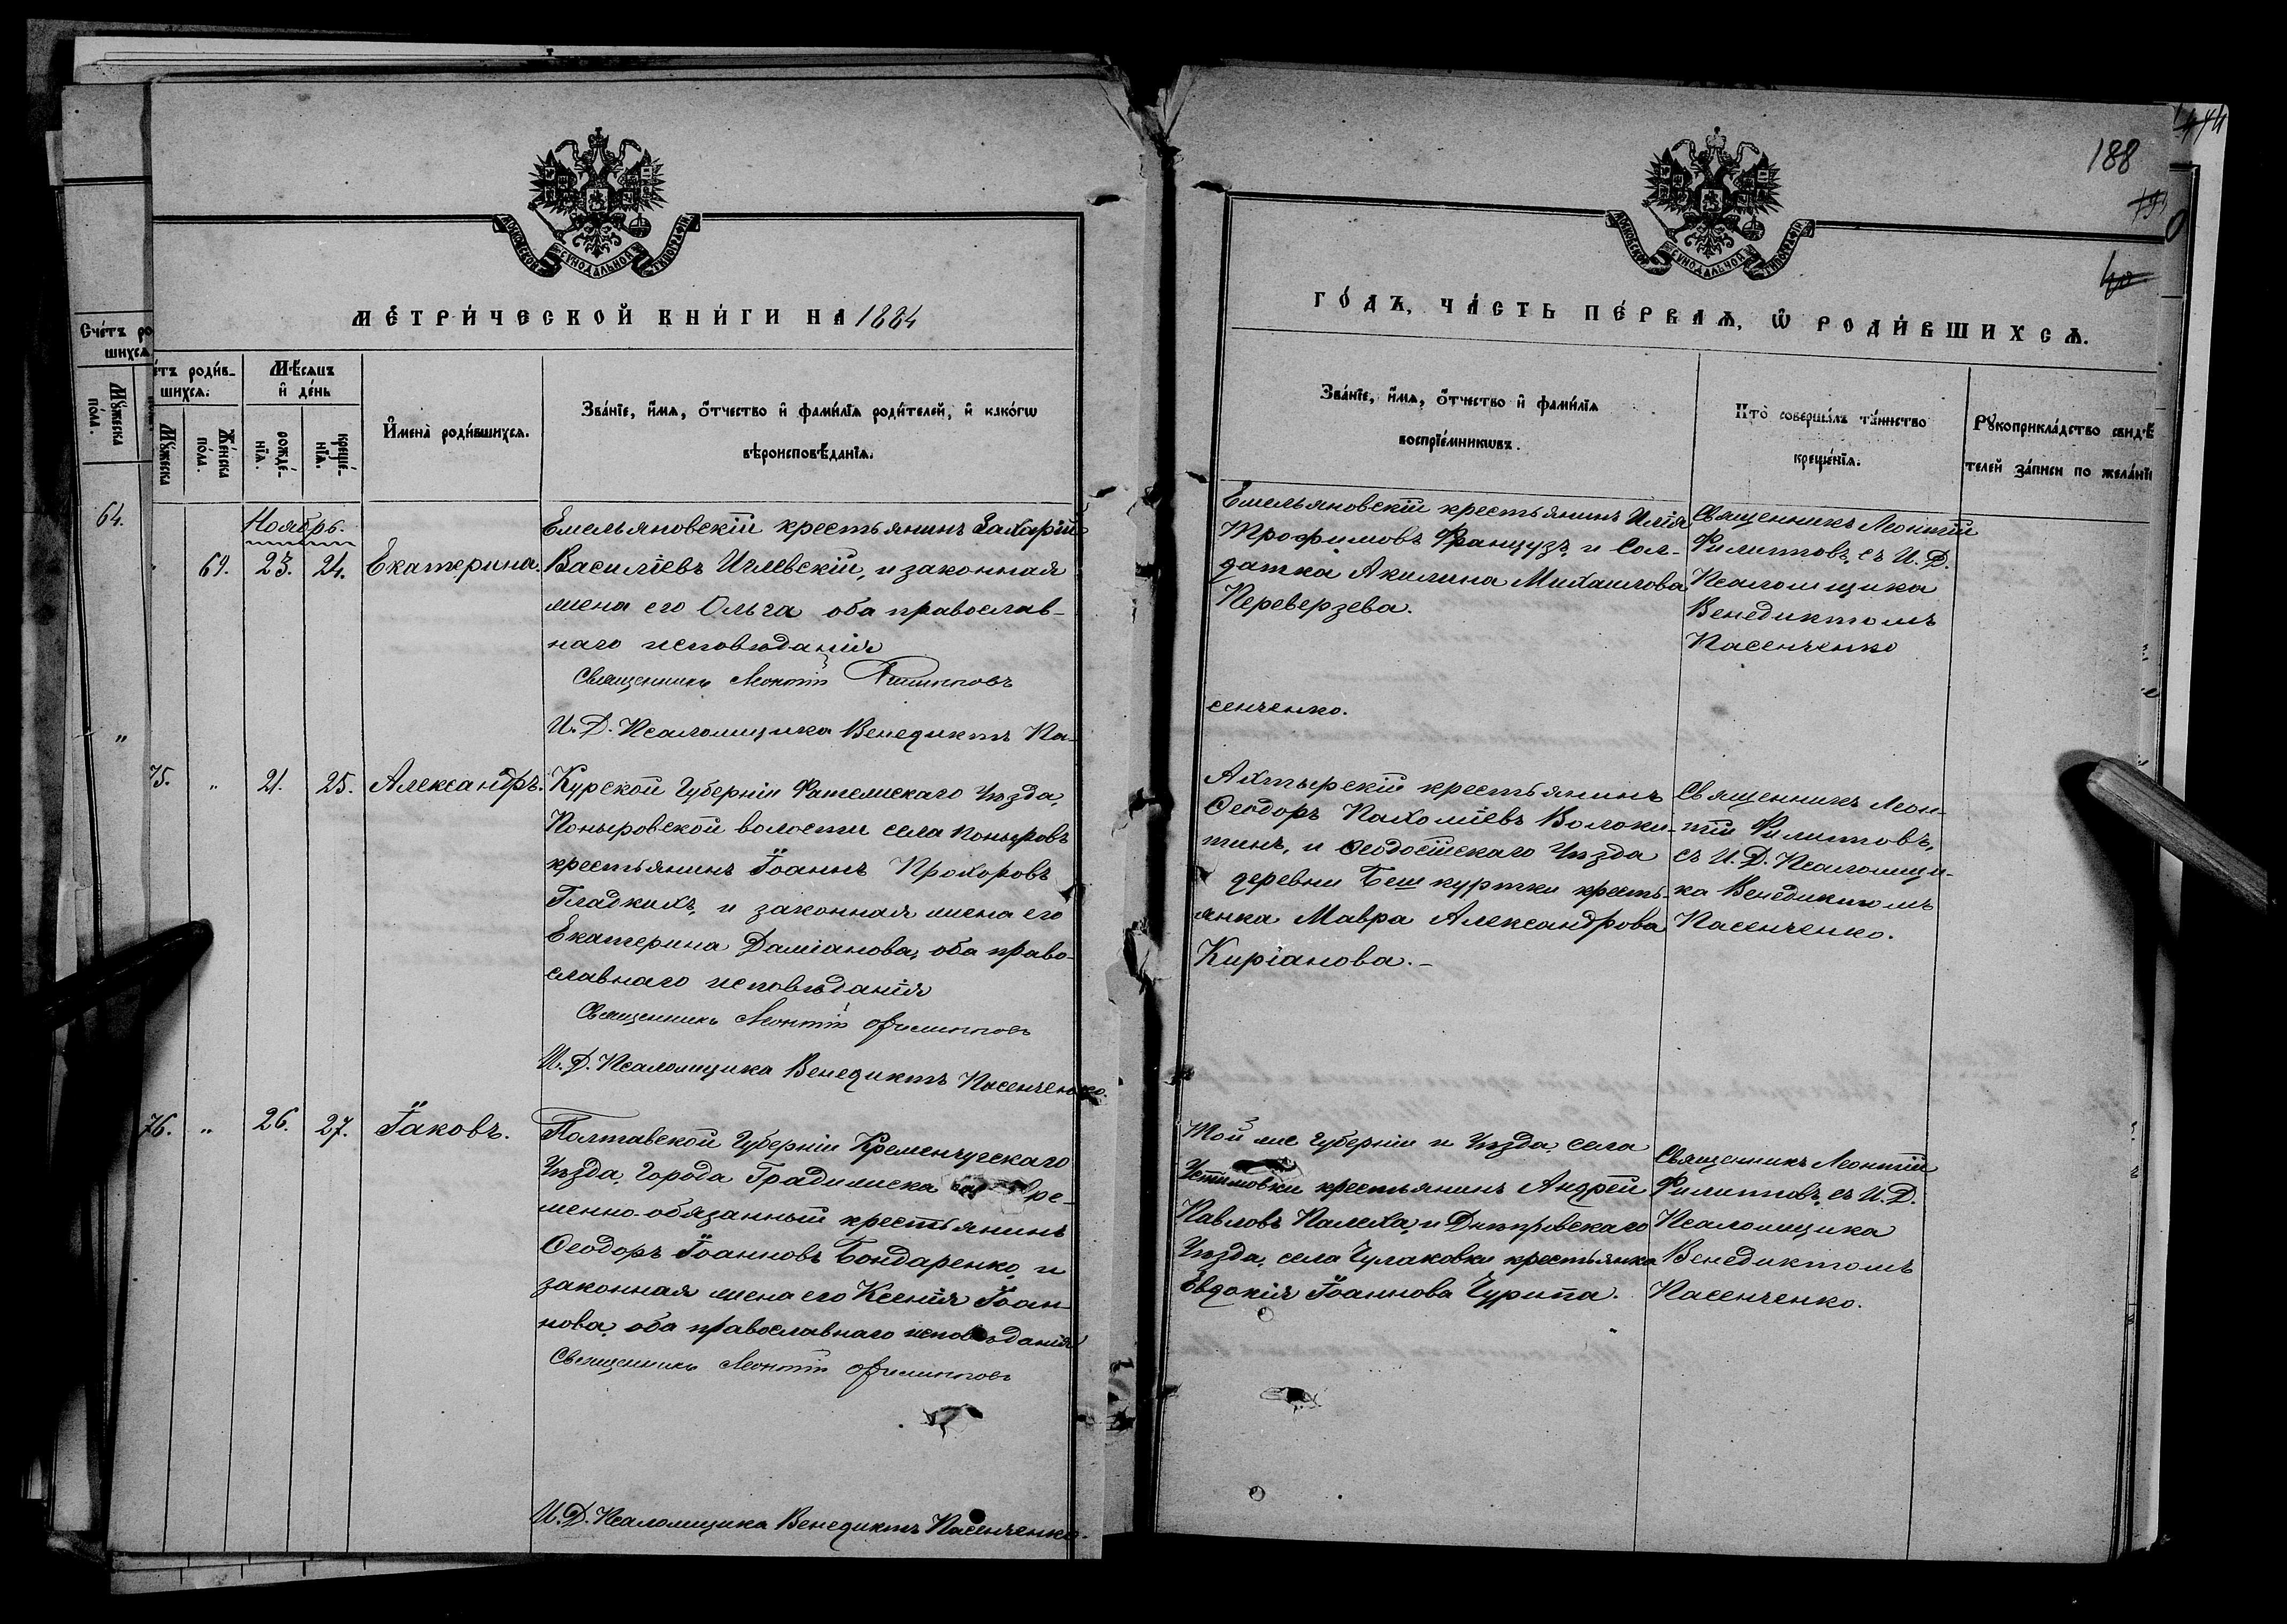 188
МЕТРИЧЕСКОЙ КНИГИ НА 1884
ГОДЪ, ЧАСТЬ ПЕРВАЯ, Ѡ РОДИВШИХСЯ.
Счетъ ро
шихся
Мужеска
пола.
64.
"
етъ родив-
шихся.
Мужеска
Женска
пола.
Мѣсяцъ
и день
рожде-
нія.
креще-
нія.
Имена родившихся.
Званіе, имя, отчество и фамилія родителей, и какогѡ
вѣроисповѣданія.
Званіе, имя, отчество и фамилія
воспріемникѡвъ.
Кто совершалъ таинство
крещенія.
Рукоприкладство свидѣ
телей записи по желані
Ноябрь.
69. 23. 24. Екатерина.
Емельяновскій крестьянинъ Захарій
Василіевъ Иглевскій, и законная
жена его Ольга оба православ-
наго исповѣданія
Священникъ Леонтій Филипповъ
И. Д. Псаломщика Венедиктъ Па-
сенченко.
Емельяновскій крестьянинъ Илія
Трофимовъ Французъ, и Сол-
датка Акилина Михаилова
Переверзева.
Священникъ Леонтій
Филипповъ, съ И. Д.
Псаломщика
Венедиктомъ
Пасенченко
75. " 21. 25. Александръ.
Курской Губерніи Фатежскаго Уѣзда,
Поныровской волости села Поныровъ
крестьянинъ Іоаннъ Прохоровъ
Гладкихъ, и законная жена его
Екатерина Даміанова, оба право-
славнаго исповѣданія
Священникъ Леонтій Филипповъ
И. Д. Псаломщика Венедиктъ Пасенченко.
Ахтырскій крестьянинъ
Ѳеодоръ Пахоміевъ Волоки-
тинъ, и Ѳеодосійскаго Уѣзда
деревни Беш куртки кресть-
янка Мавра Александрова
Киріанова.-
Священникъ Леон-
тій Филипповъ,
съ И. Д. Псаломщи-
ка Венедиктомъ
Пасенченко.
76. " 26. 27. Іаковъ.
Полтавской Губерніи Кременчугскаго
Уѣзда, Города Градижска вре-
менно-обязанный крестьянинъ
Ѳеодоръ Іоанновъ Бондаренко, и
законная жена его Ксенія Іоан-
нова, оба православнаго исповѣданія
Священникъ Леонтій Филипповъ
И. Д. Псаломщика Венедиктъ Пасенченко.
Той же Губерніи и Уѣзда, села
Устимовки крестьянинъ Андрей
Павловъ Палеха, и Днѣпровскаго
Уѣзда, села Чулаковки крестьянка
Евдокія Іоаннова Чурипа.
Священникъ Леонтій
Филипповъ, съ И. Д.
Псаломщика
Венедиктомъ
Пасенченко.